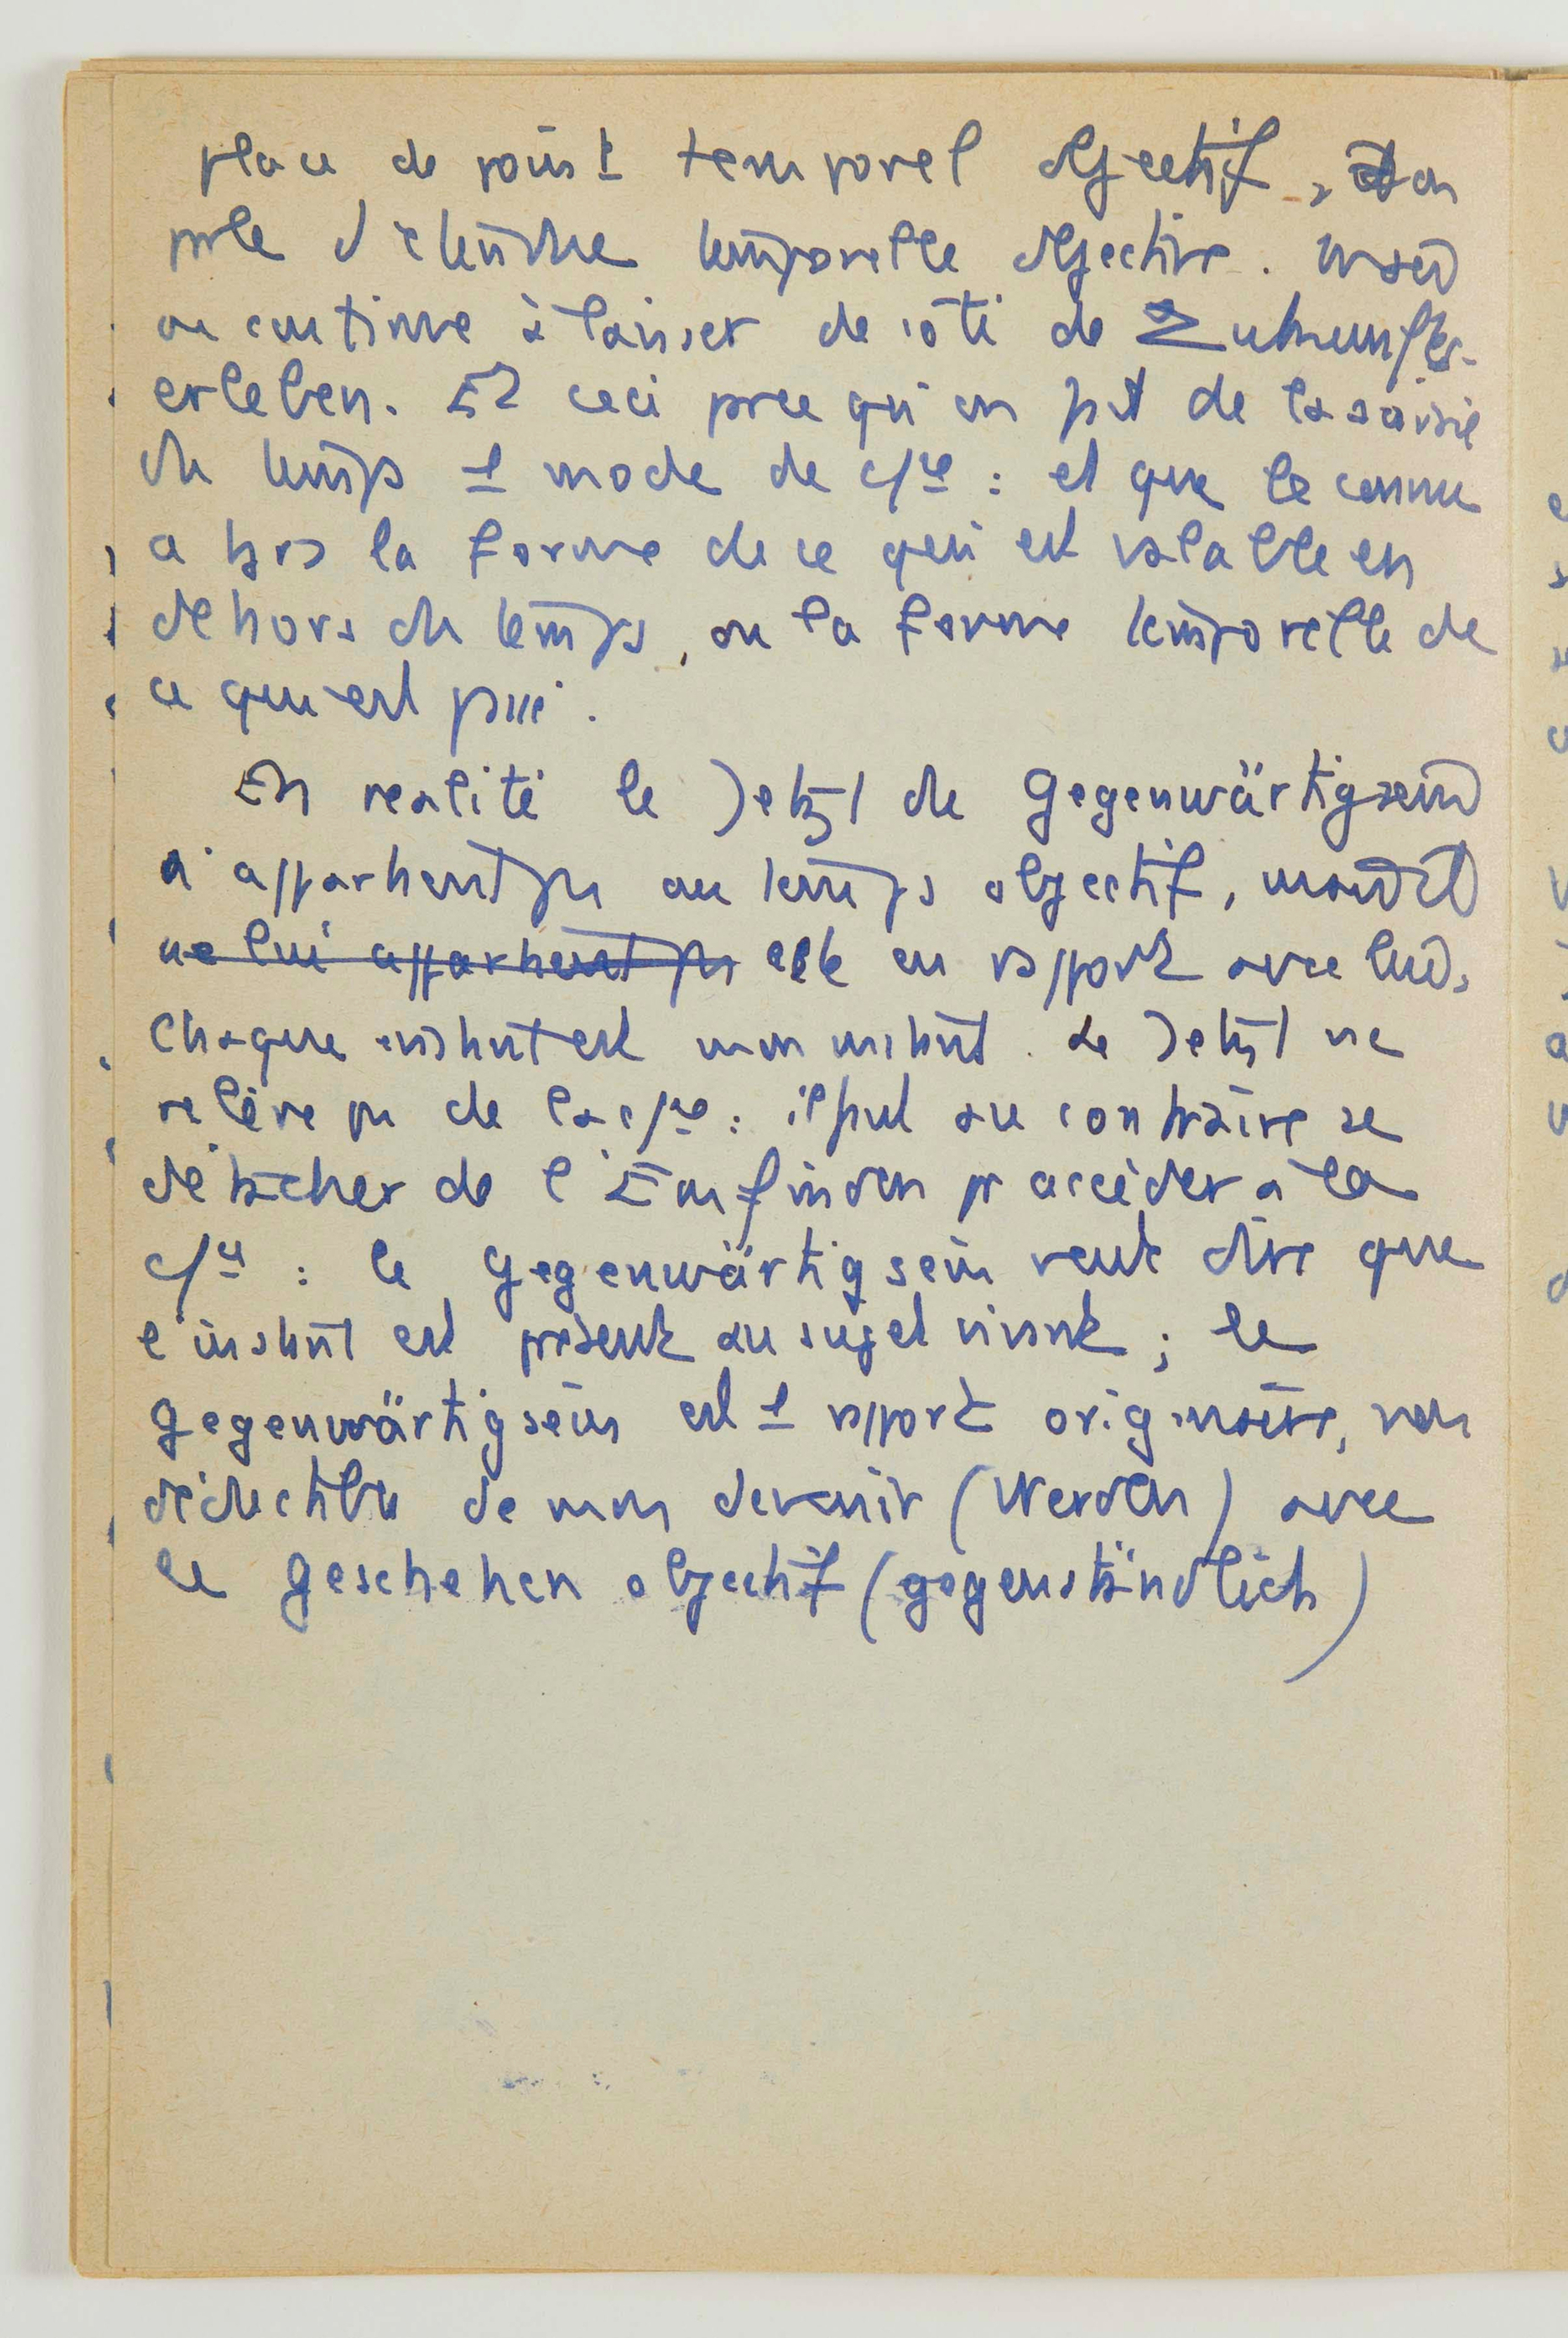 place de point temporel objectif, et on
parle d'étendue temporelle objective. Mais
on continue à laisser de côté de Zukunfts-
erleben. Et ceci parce qu'on fait de la saisie
du temps 1 mode de c/ce : et que le connu
a tjrs la forme de ce qui est valable en
dehors du temps, ou la forme temporelle de
ce qui est passé.
En réalité le Jetzt du Gegenwärtigsein
n'appartient pas au temps objectif, mais il
ne lui appartient pas est en rapport avec lui.
Chaque instant est mon instant. Le Jetzt ne
relève pas de la c/ce : il peut au contraire se
détacher de l'Empfinden pr accéder à la
c/ce : le Gegenwärtigsein veut dire que
l'instant est présent au sujet vivant ; le
Gegenwärtigsein est 1 rapport originaire, non
déductible de mon devenir (Werden) avec
le Geschehen objectif (gegenständlich)